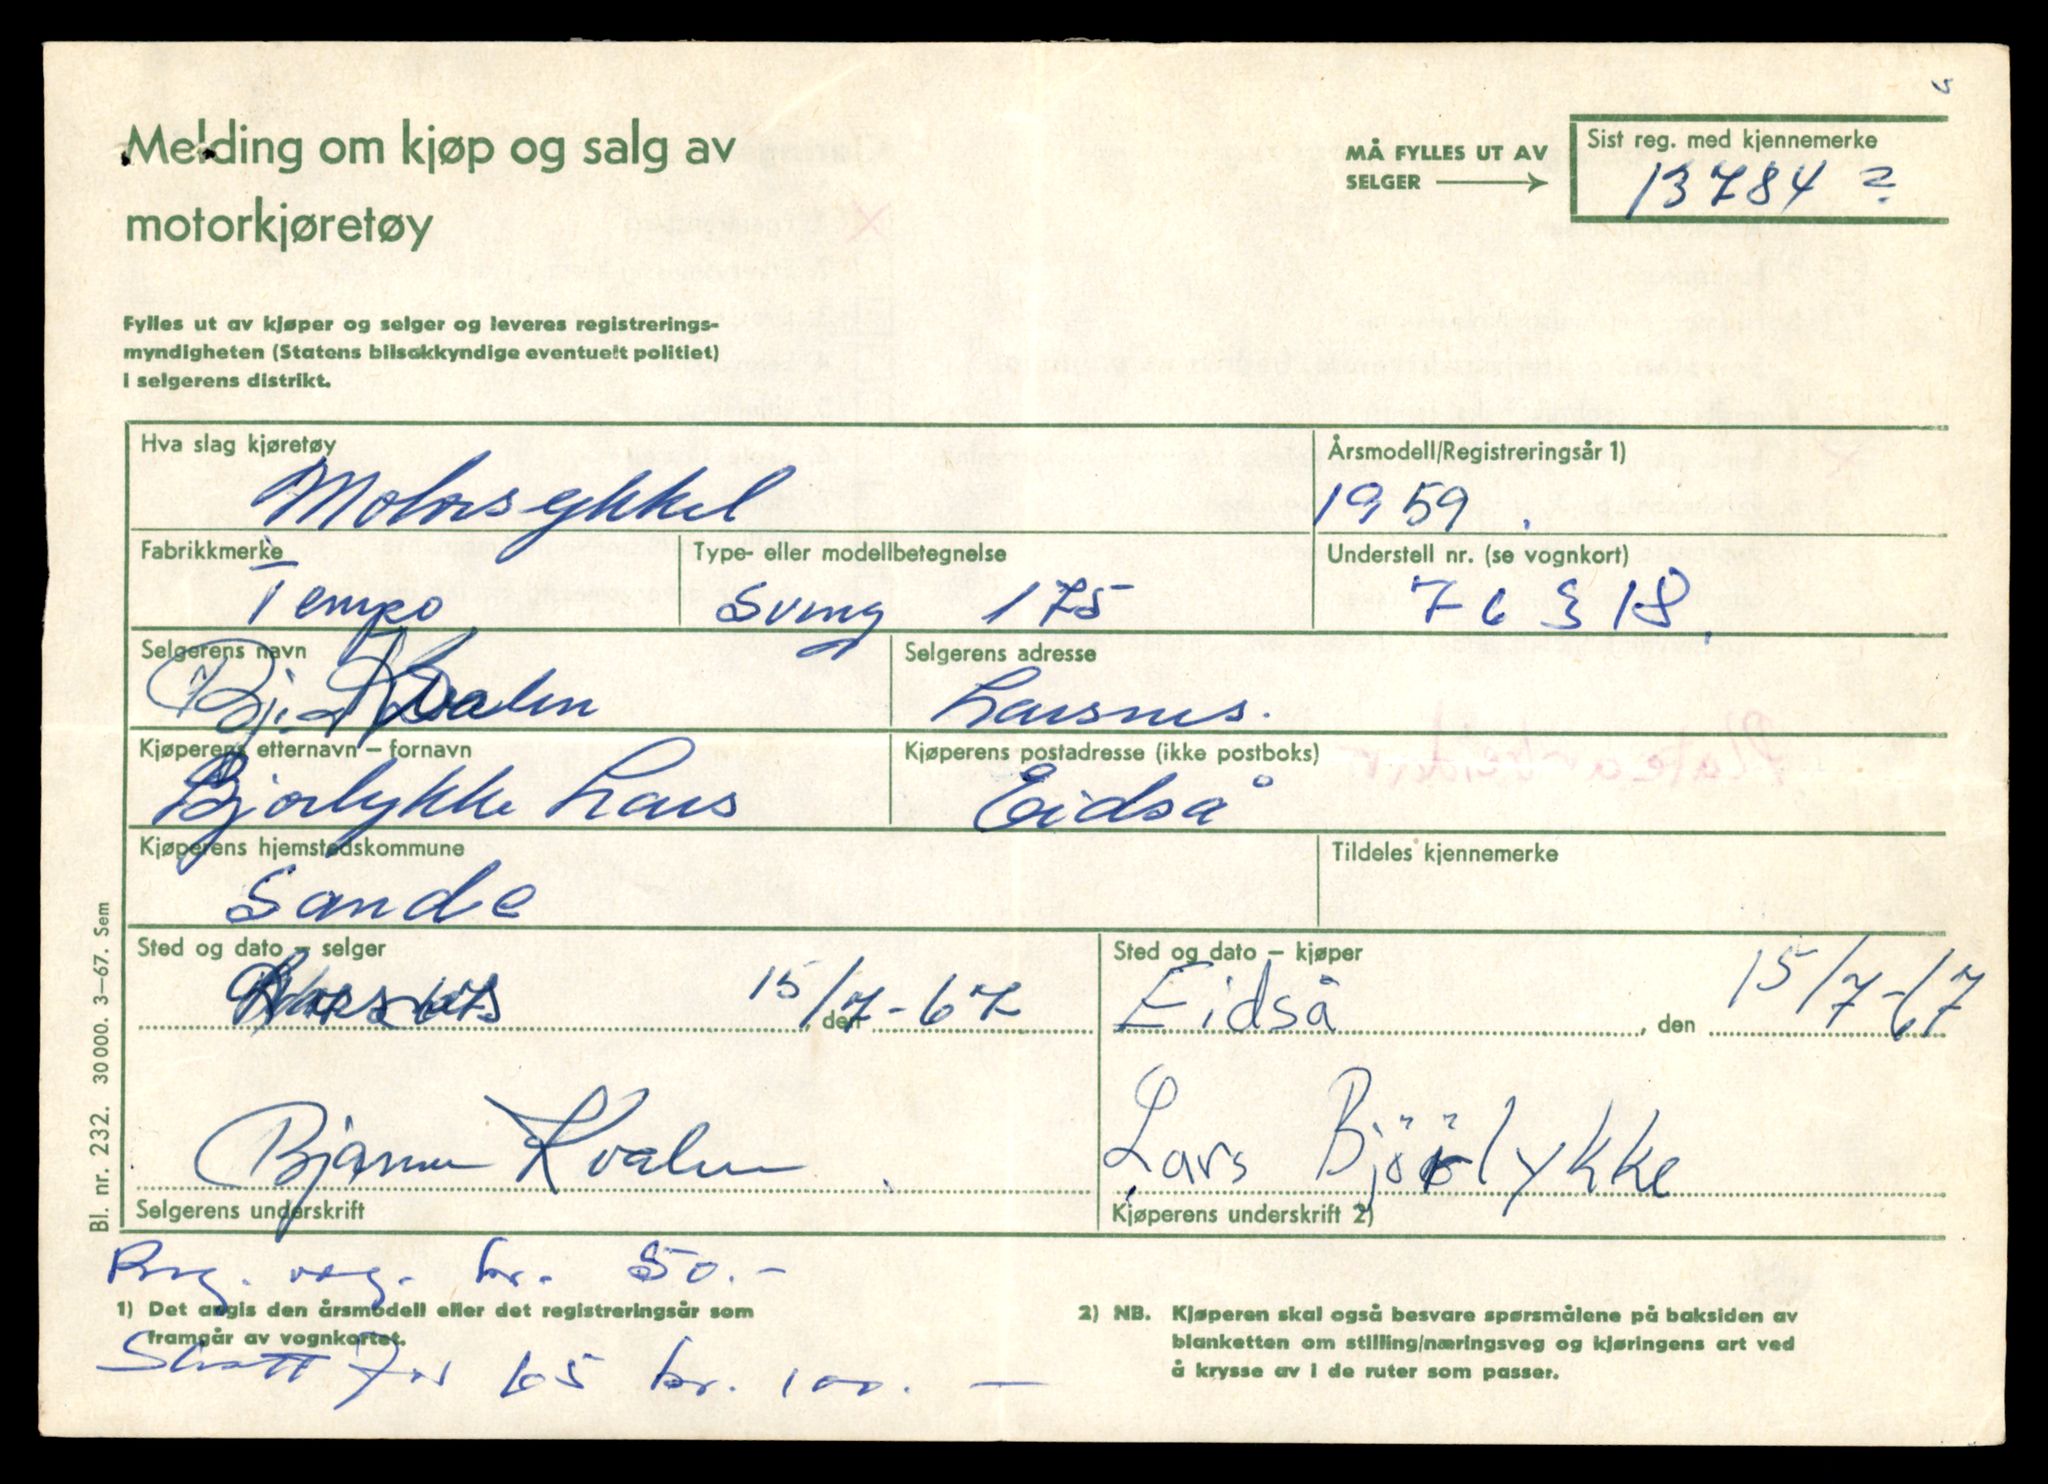 Melding om kjøp og salg av
motorkjøretøy
MÅ FYLLES UT AV
SELGER
Sist reg. med kjennemerke
13784 ?
Fylles ut av kjøper og selger og leveres registrerings-
myndigheten (Statens bilsakkyndige eventuelt politiet)
i selgerens distrikt.
Hva slag kjøretøy
Motorsykkel
Årsmodell/Registreringsår 1)
1959
Fabrikkmerke
Tempo
Type- eller modellbetegnelse
Sving 175
Understell nr. (se vognkort)
76318
Selgerens navn
Kvalen
Selgerens adresse
Larsnes.
Kjøperens etternavn – fornavn
Bjørlykke Lars
Kjøperens postadresse (ikke postboks)
Eidså
Kjøperens hjemstedskommune
Sande
Tildeles kjennemerke
Sted og dato – selger
Larsnes, den 15/7-67
Sted og dato – kjøper
Eidså, den 15/7-67
Bjarne Kvalen
Selgerens underskrift
Lars Bjørlykke
Kjøperens underskrift 2)
Bl. nr. 232. 30 000. 3–67. Sem
Reg. avg. kr. 50.-
1) Det angis den årsmodell eller det registreringsår som
framgår av vognkortet.
Skatt for 65 kr. 100.-
2) NB. Kjøperen skal også besvare spørsmålene på baksiden av
blanketten om stilling/næringsveg og kjøringens art ved
å krysse av i de ruter som passer.